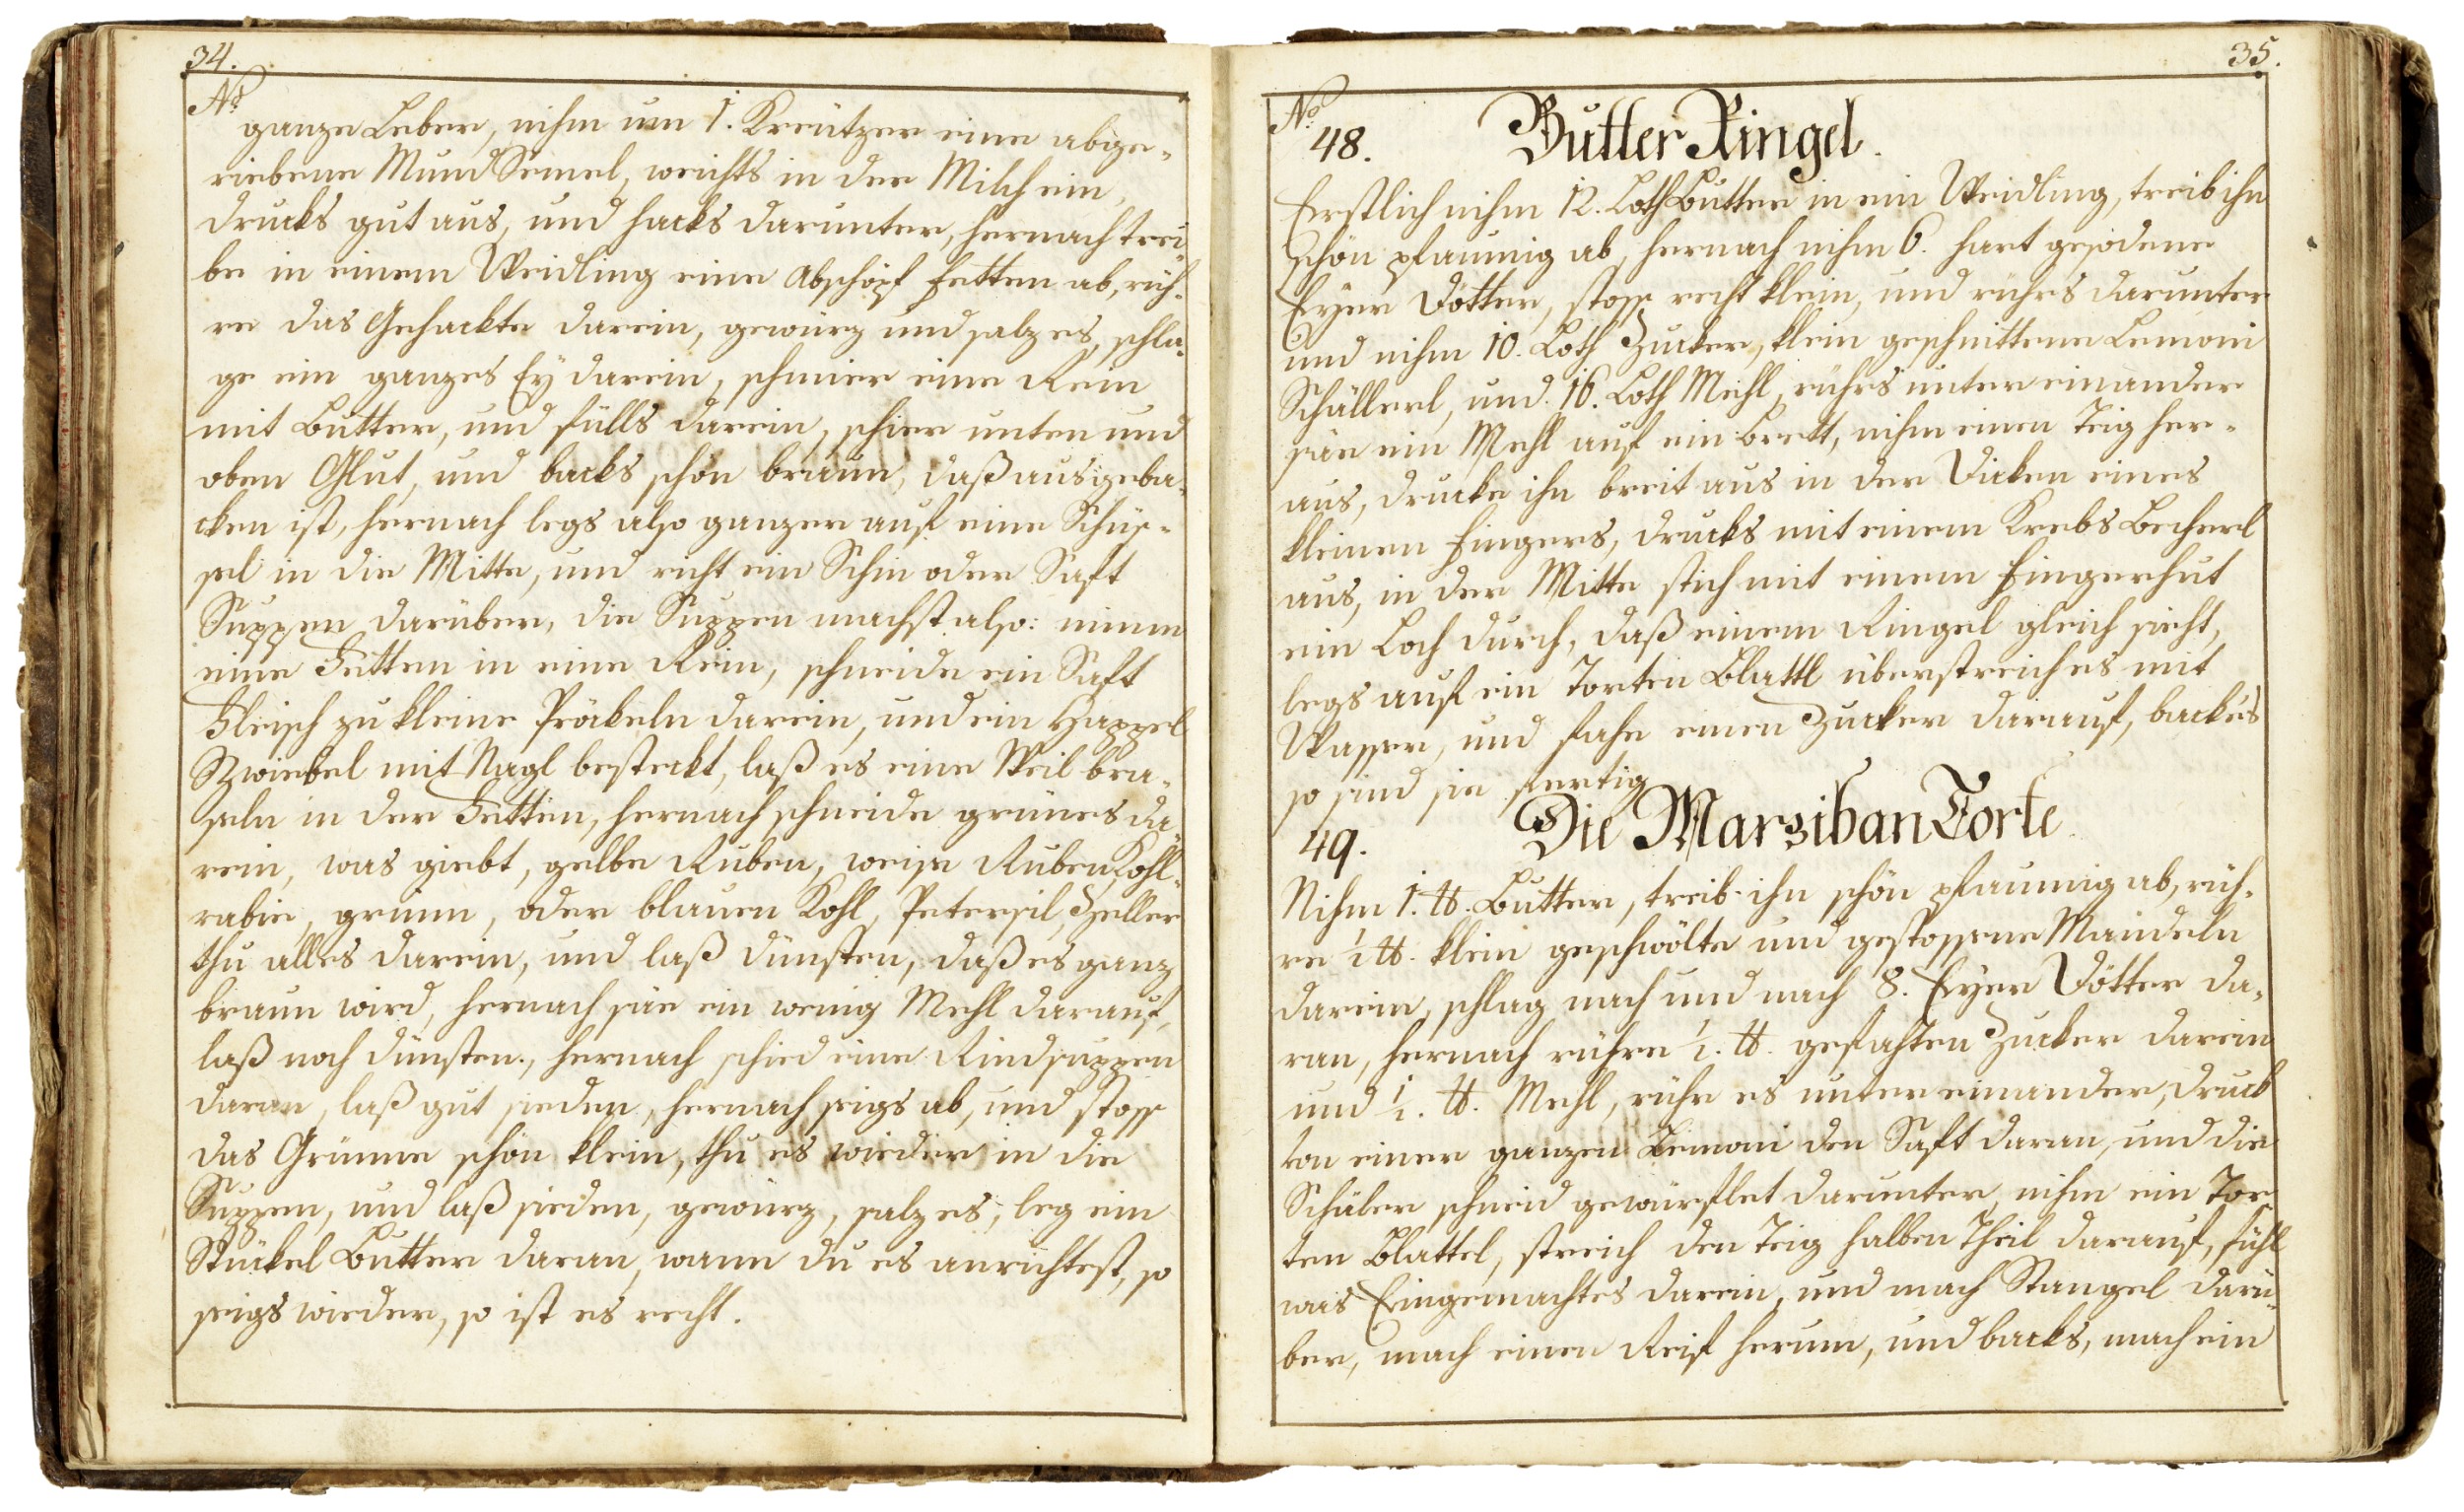 34.
No
ganze Leber, nihm um 1. Kreützer eine abge-
riebene Mund Semel, weichts in der Milch ein,
drucks gut aus, und hacks darunter, hernach trei-
be in einem Weidling eine Abschöpf fetten ab, rüh-
re das Gehackte darein, gewürz und salz es, schla-
ge ein ganzes Ey darein, schmier eine Rein
mit Butter, und fülls darein, schier unten und
oben Glut, und backs schön braun, daß ausgeba-
cken ist, hernach legs also ganzer auf eine Schüs-
sel in die Mitte, und richt ein Schü oder Saft
Suppen darüber, die Suppen machst also: nimm
eine Fetten in eine Rein, schneide ein Saft
Fleisch zu kleine Bröckeln darein, und ein Happel
Zwiebel mit Nagl besteckt, laß es eine Weil bra-
seln in der Fetten, hernach schneide grünes da-
rein, was giebt, gelbe Ruben, weise Ruben, Kohl-
rabie, grünn, oder blauen Kohl, Petersil, Zeller
thu alles darein, und laß dünsten, daß es ganz
braun wird, hernach säe ein wenig Mehl darauf,
laß noch dünsten, hernach schied eine Rindsuppen
daran, laß gut sieden, hernach seigs ab, und stosse
das Grünne schön klein, thu es wieder in die
Suppen, und laß sieden, gewürz, salz es, leg ein
Stückel Butter daran, wann du es anrichtest, so
seigs wieder, so ist es recht.
35.
No
48. Butter Ringel.
Erstlich nihm 12. Loth Butter in ein Weidling, treib ihn
schön pflaumig ab, hernach nihm 6. hart gesodene
Eyer Dötter, stosse recht klein, und rührs darunter
und nihm 10. Loth Zucker, klein geschnittene Lemoni
Schällerl, und 16. Loth Mehl, rührs unter einander
säe ein Mehl auf ein Brett, nihm einen Teig her-
aus, drucke ihn breit aus in der Dicken eines
kleinen Fingers, drucks mit einem Krebs Becherl
aus, in der Mitte stich mit einem Fingerhut
ein Loch durch, daß einem Ringel gleich sieht,
legs auf ein Torten Blattl überstreich es mit
Wasser, und fahe einen Zucker darauf, backes
so sind sie fertig
49. Die Marziban Torte.
Nihm 1. ℔. Butter, treib ihn schön pflaumig ab, rüh-
re 1 ℔. klein geschwölte und gestossene Mandeln
darein, schlag nach und nach 8. Eyer Dötter da-
ran, hernach rühre ½. ℔. gefahten Zucker darein
und ½. ℔. Mehl, rühr es unter einander, druck
von einer ganzen Lemoni den Saft daran, und die
Schäler schneid gewürflet darunter, nihm ein Tor-
ten Blattel, streich den Teig halben Theil darauf, fühl
was Eingemachtes darein, und mach Stangel darü-
ber, mach einen Reif herum, und backs, mach ein